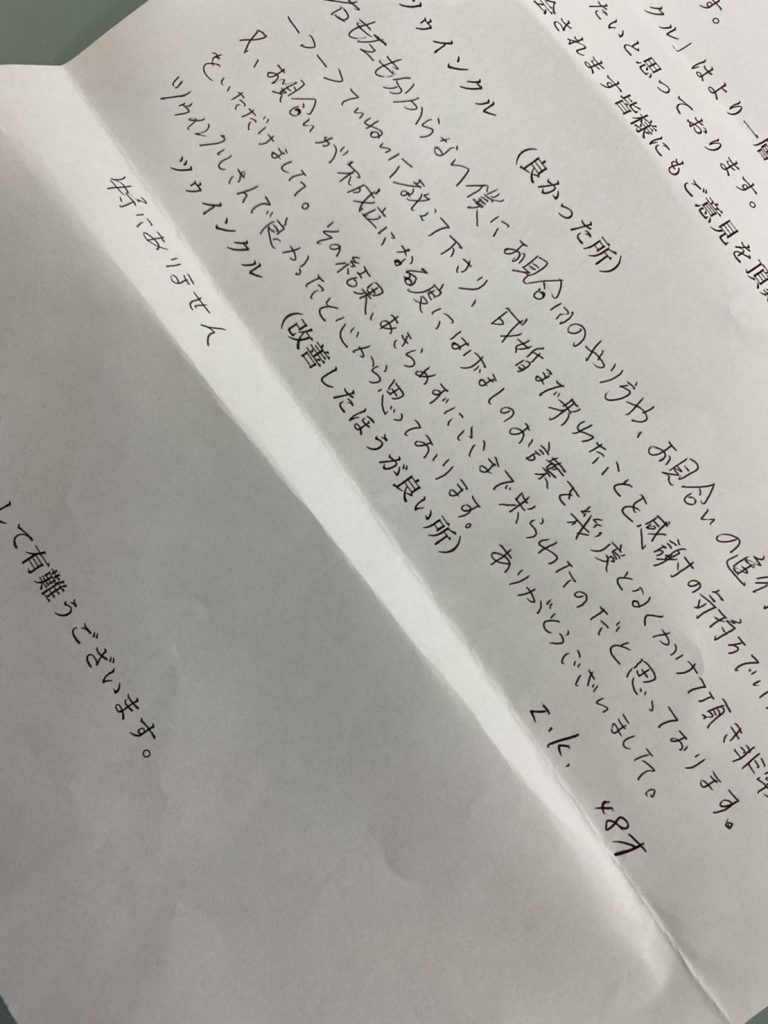 す。
クル」はより一層
たいと思っております。
会されます皆様にもご意見を頂
ツウインクル (良かった所)
右も左も分からない僕にお見合いのやり方や、お見合いの進
一つ一つていねいに教えて下さり、成婚まで来れたことを感謝の気持ちでい
又、お見合いが不成立になる度にはげましのお言葉を幾度となくかけて頂き非常
をいただけました。その結果、あきらめずにここまで来られたのだと思っております。
ツウインクルさんで良かったと心から思っております。ありがとうございました。
I.K. 48才
ツウインクル (改善したほうが良い所)
特にありません
して有難うございます。